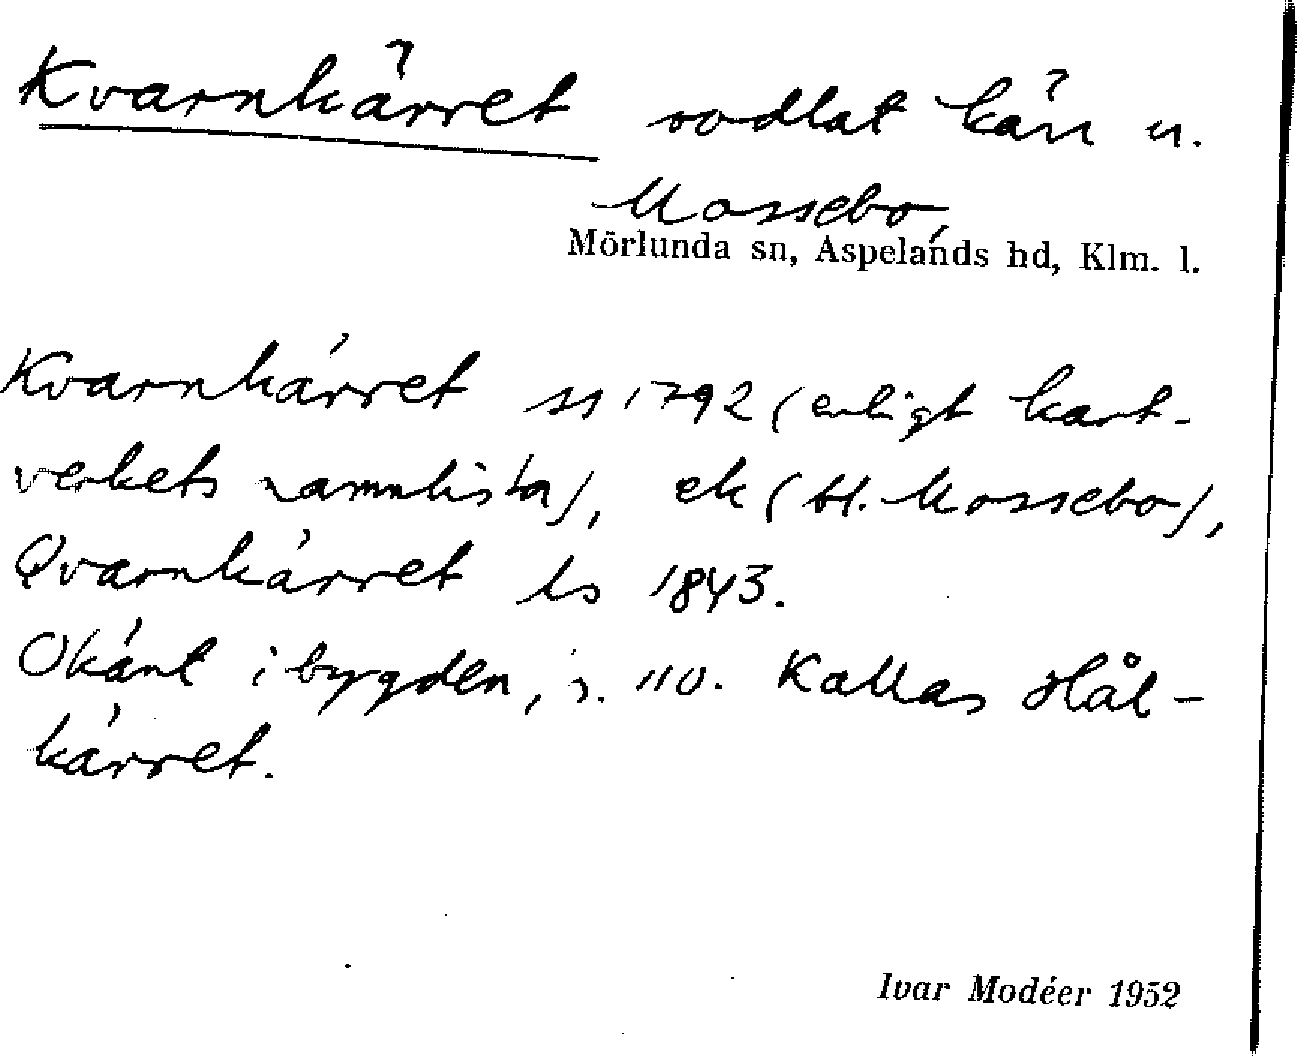 Kvarnkärret oodlat kärr u.
Mossebo,
Mörlunda sn, Aspelands hd, Klm. l.
Kvarnkärret ss 1792 (enligt kart-
verkets namnlista), ek (bl. Mossebo),
Qvarnkärret ls 1843.
Okänt i bygden, s. 110. Kallas Hål-
kärret.
Ivar Modéer 1952